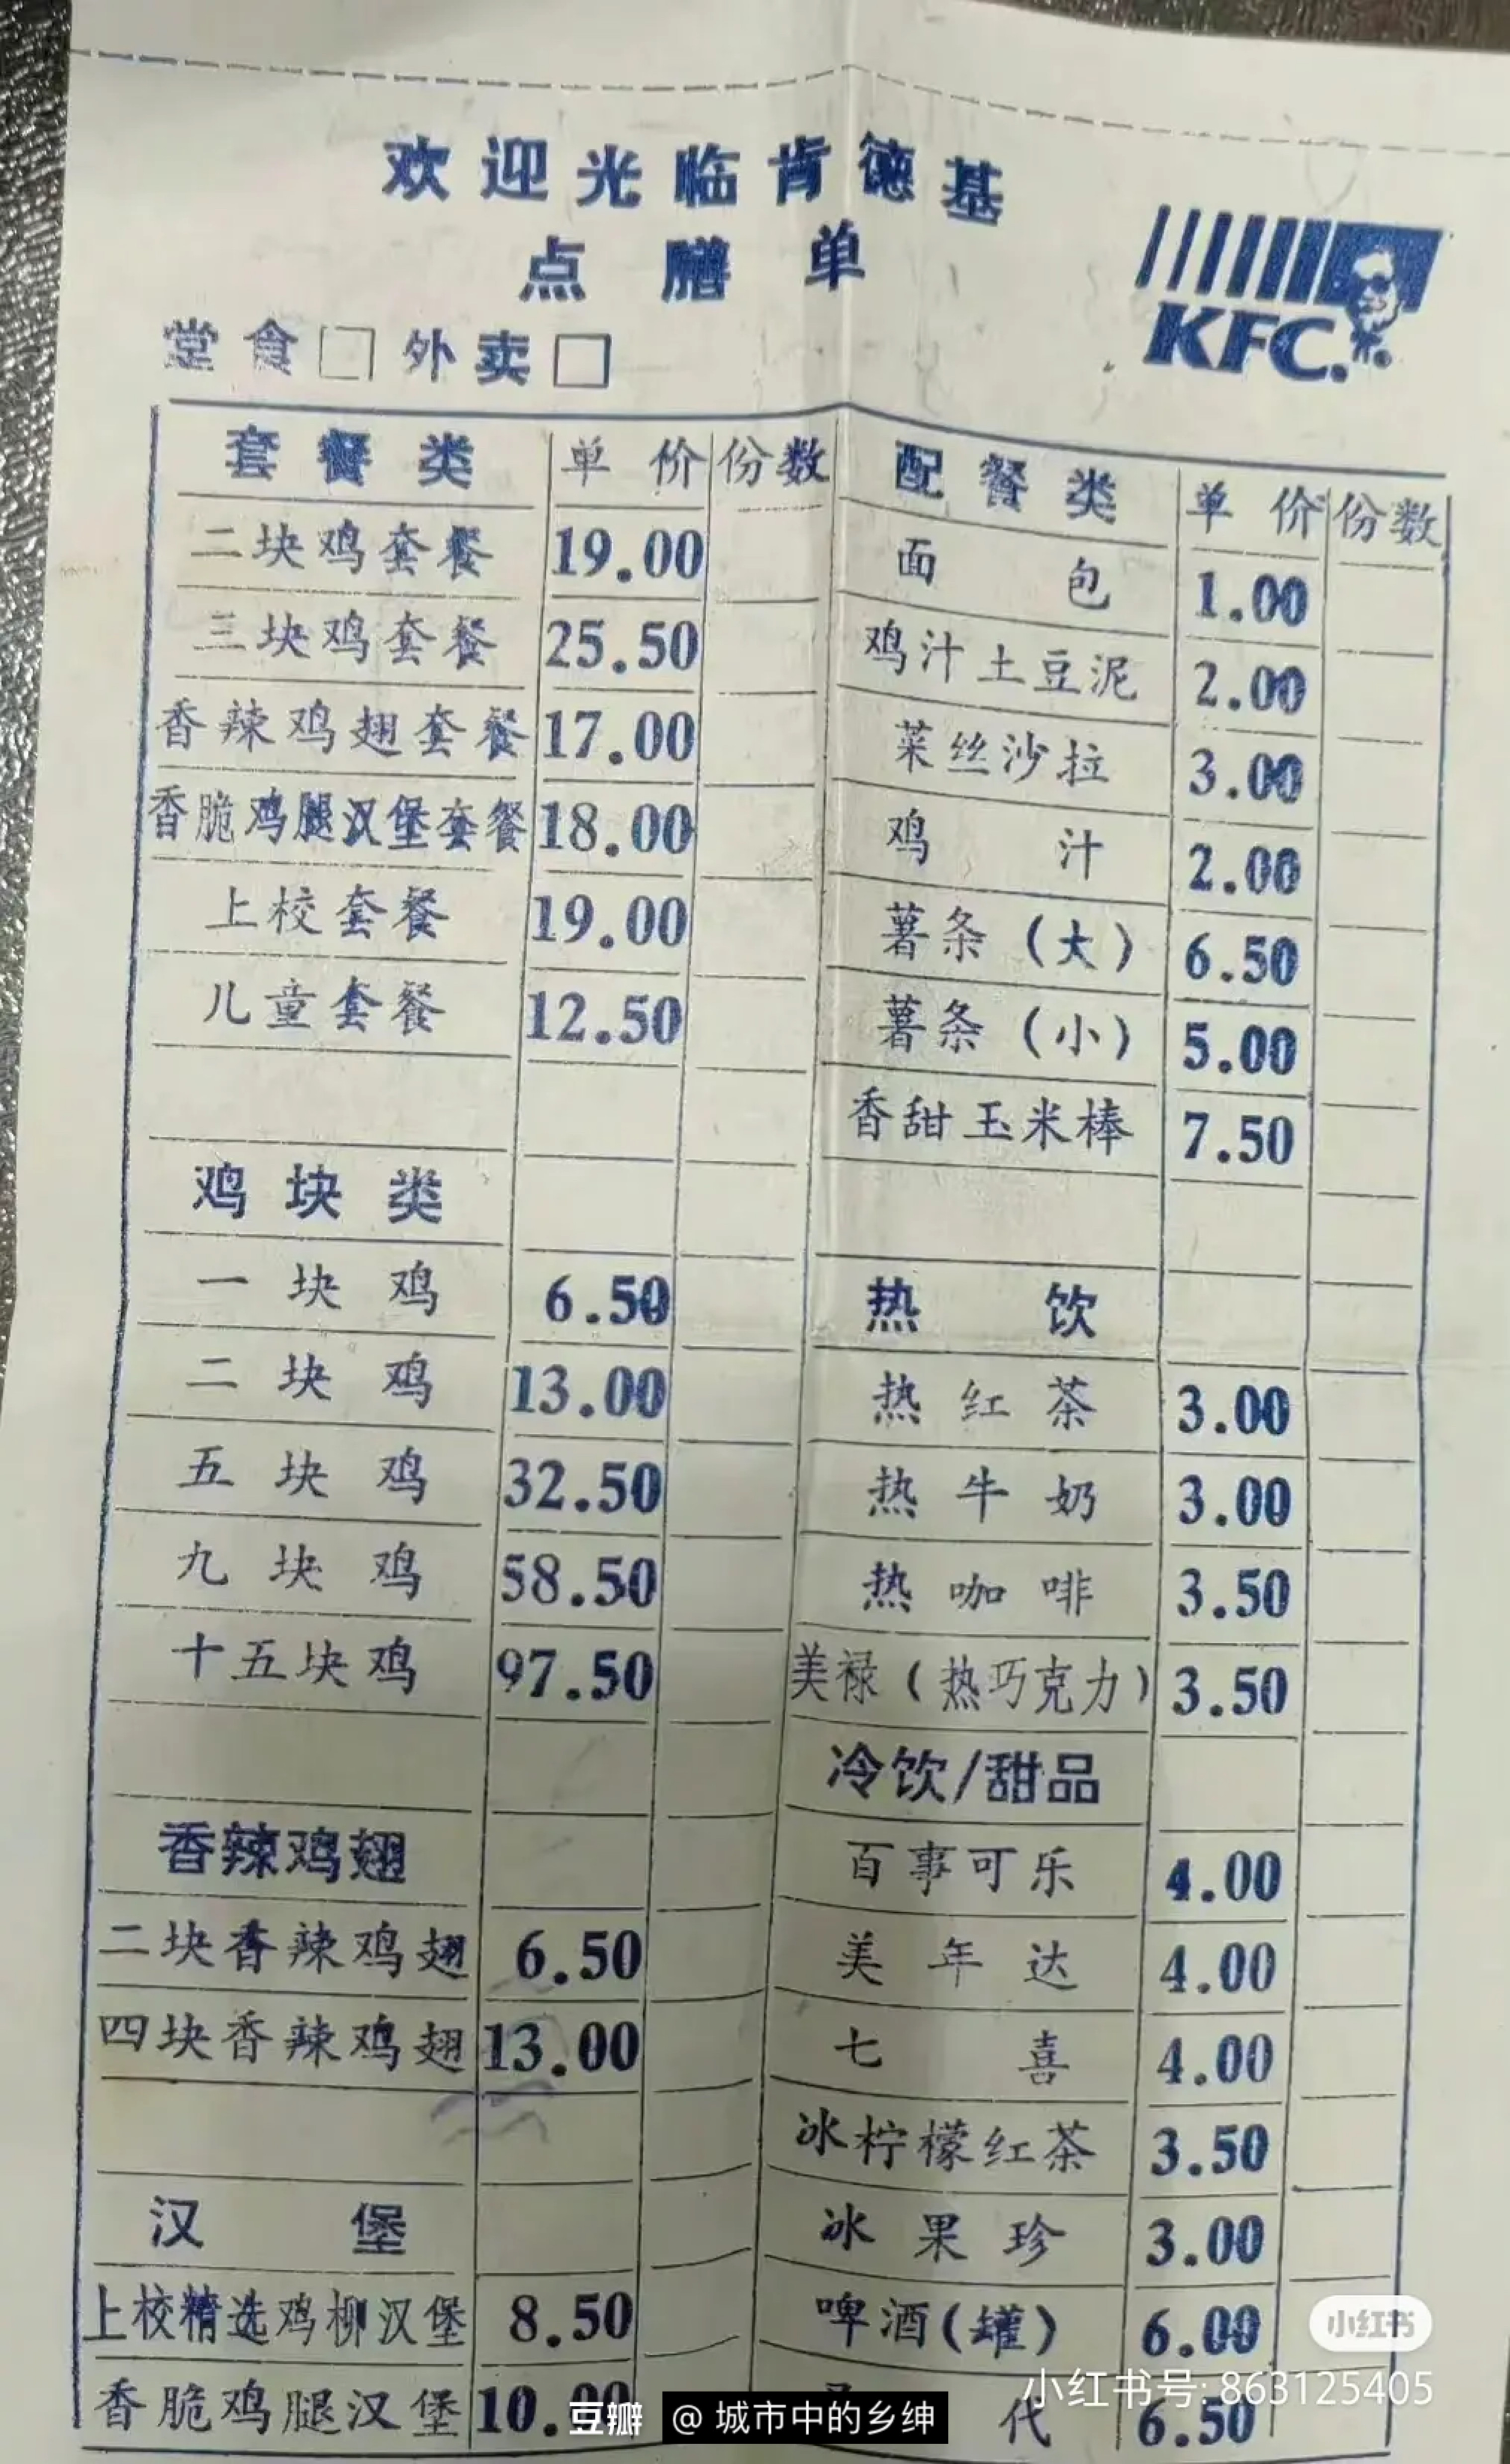 欢迎光临肯德基
点膳单
KFC.
堂食□ 外卖□
套餐类 单价 份数
二块鸡套餐 19.00
三块鸡套餐 25.50
香辣鸡翅套餐 17.00
香脆鸡腿汉堡套餐 18.00
上校套餐 19.00
儿童套餐 12.50
鸡块类
一块鸡 6.50
二块鸡 13.00
五块鸡 32.50
九块鸡 58.50
十五块鸡 97.50
香辣鸡翅
二块香辣鸡翅 6.50
四块香辣鸡翅 13.00
汉堡
上校精选鸡柳汉堡 8.50
香脆鸡腿汉堡 10.00
配餐类 单价 份数
面包 1.00
鸡汁土豆泥 2.00
菜丝沙拉 3.00
鸡汁 2.00
薯条(大) 6.50
薯条(小) 5.00
香甜玉米棒 7.50
热饮
热红茶 3.00
热牛奶 3.00
热咖啡 3.50
美禄(热巧克力) 3.50
冷饮/甜品
百事可乐 4.00
美年达 4.00
七喜 4.00
冰柠檬红茶 3.50
冰果珍 3.00
啤酒(罐) 6.00
代 6.50
小红书
小红书号: 863125405
豆瓣 @城市中的乡绅